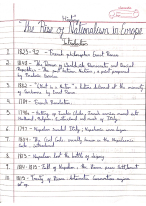 History
The Rise of Nationalism in Europe
Introduction
1. 1823-92 - French philosopher Ernst Renan
2. 1848 - The Dream of Worldwide Democratic and Social
Republics - The Pact Between Nations, a print prepared
by Frederic Sorrieu
3. 1882 - "What is a Nation" a lecture delivered at the university
of Sorbonne by Ernst Renan
4. 1789 - French Revolution
5. 1790s - French armies moved into
Holland, Belgium, Switzerland and much of Italy.
6. 1797 - Napoleon invaded Italy; Napoleonic wars began.
7. 1804 - The Civil Code usually known as the Napoleonic
Code introduced
8. 1813 - Napoleon lost the battle of Leipzig
9. 1814-1815 - Fall of Napoleon - the Vienna peace settlement
10. 1815 - Treaty of Vienna